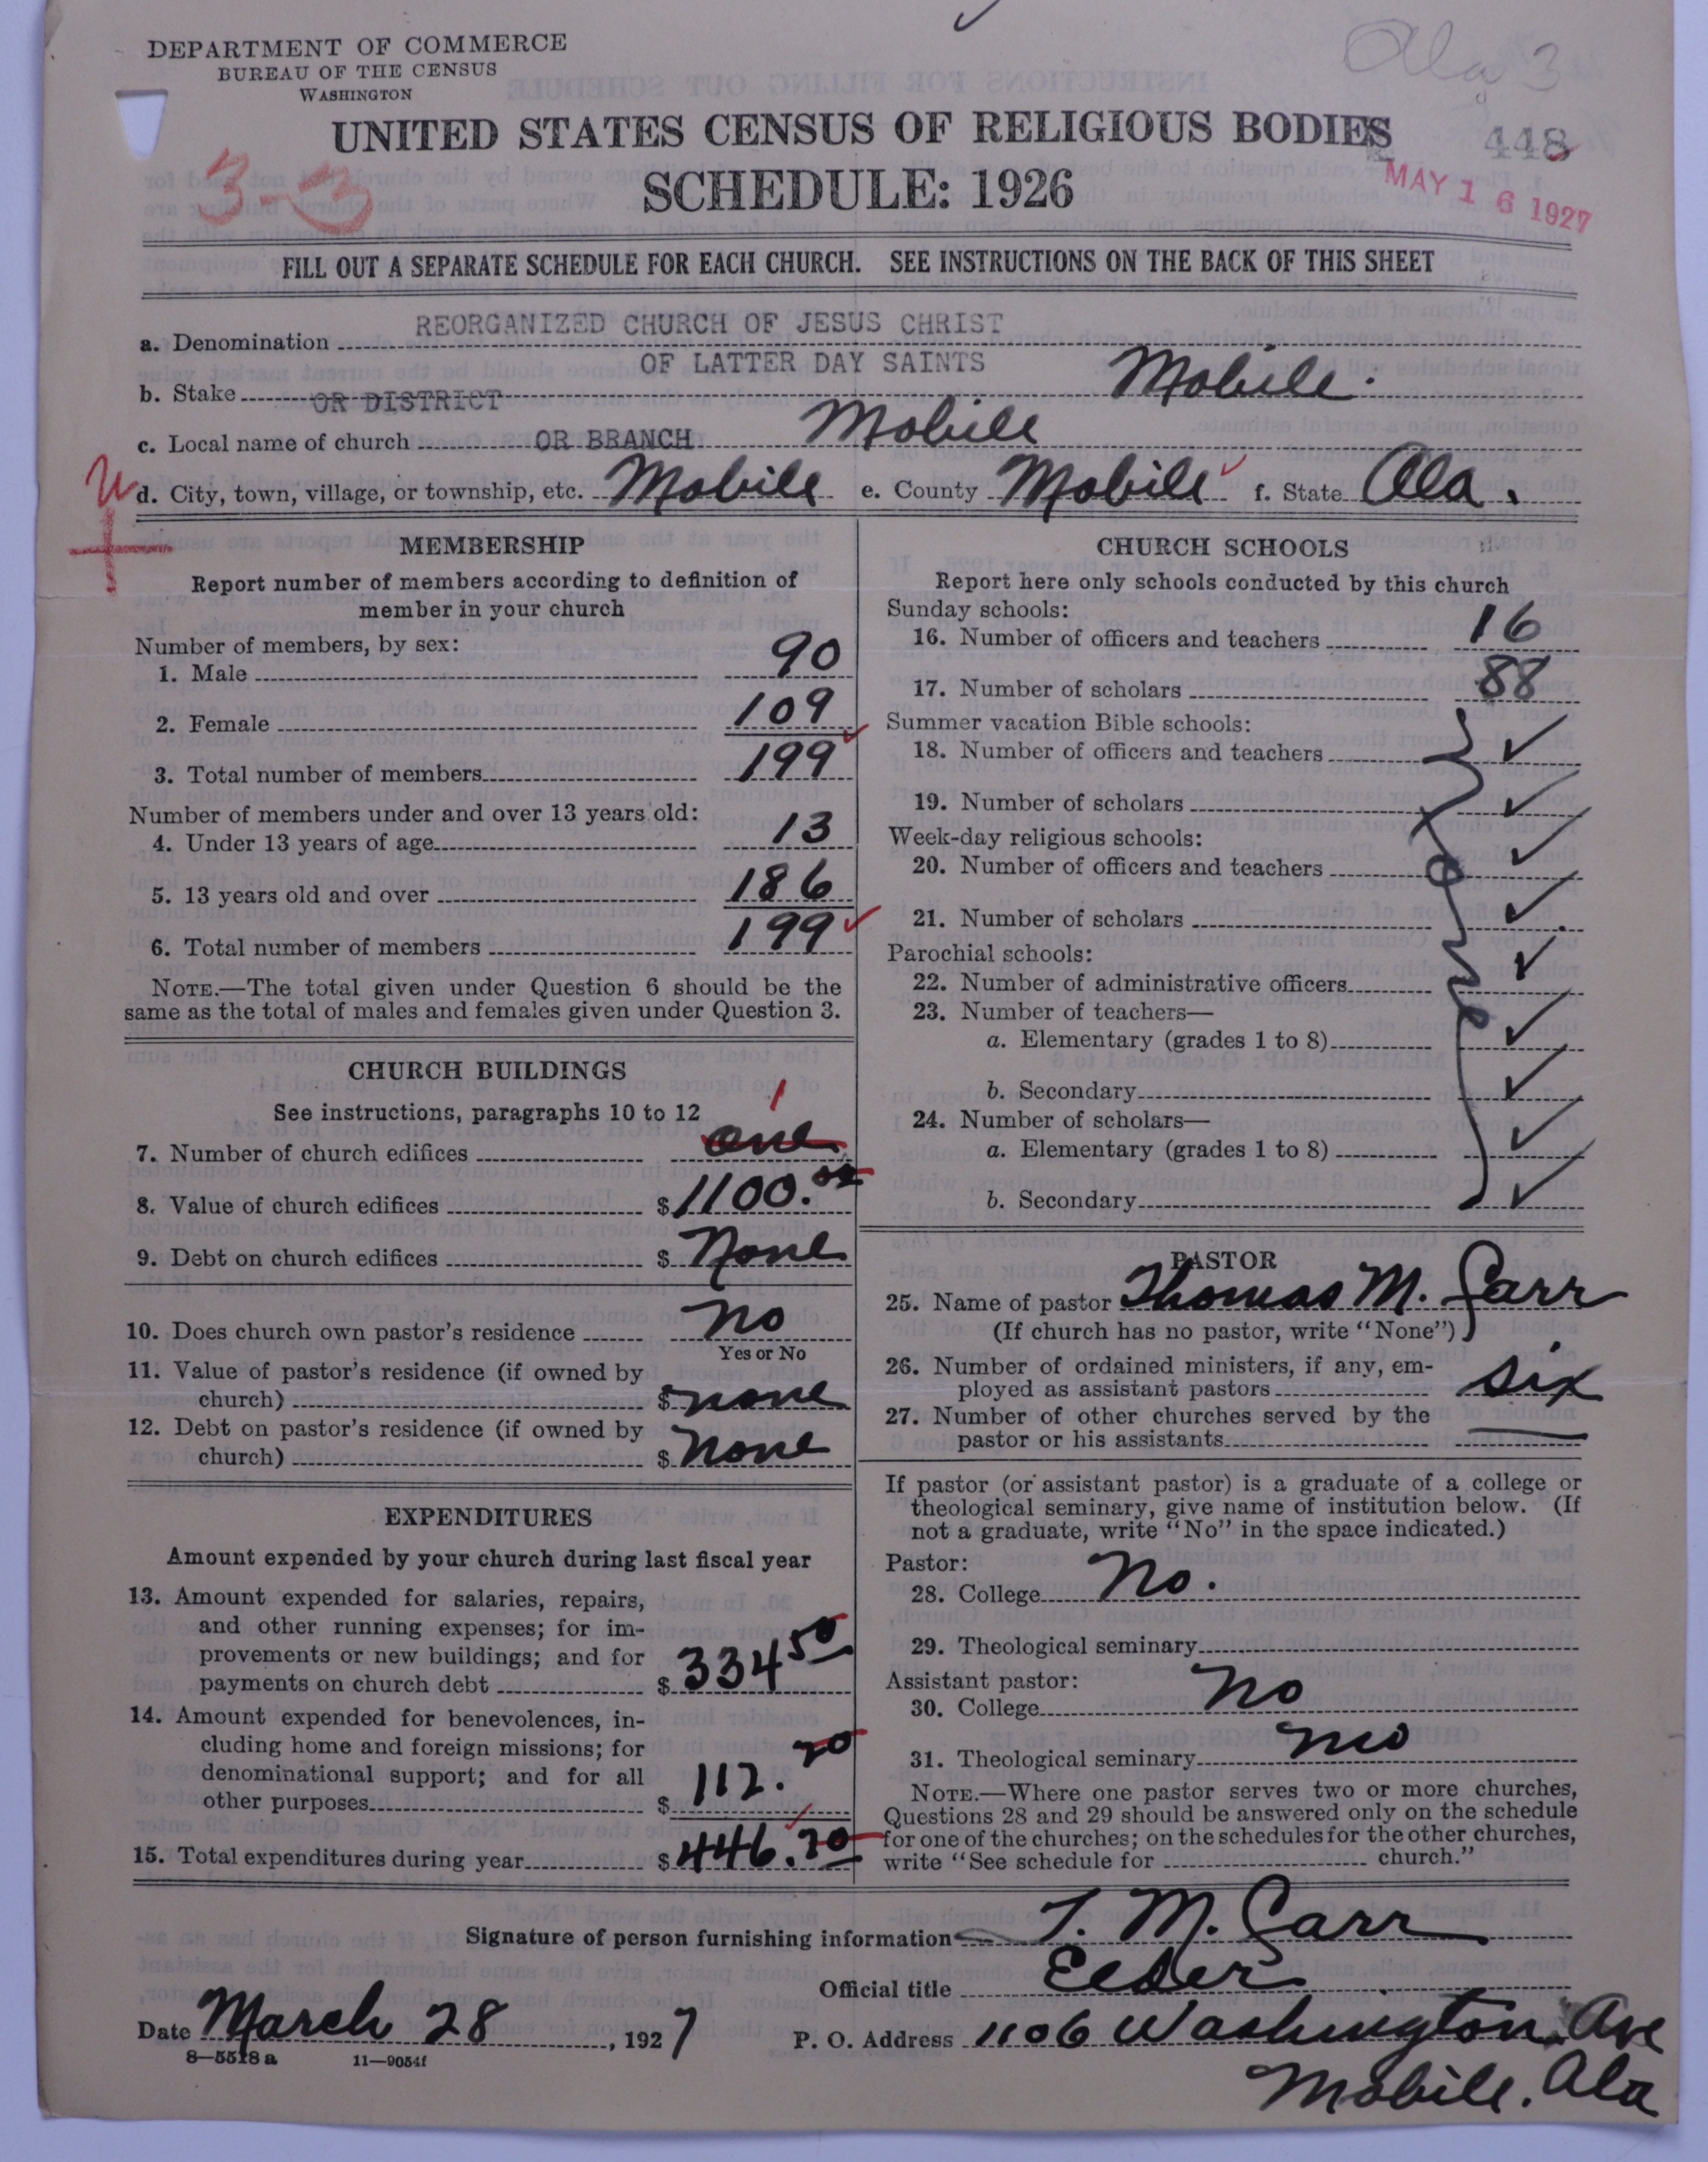 Ala 3
DEPARTMENT OF COMMERCE
BUREAU OF THE CENSUS
WASHINGTON
UNITED STATES CENSUS OF RELIGIOUS BODIES
448
3-3
SCHEDULE: 1926
MAY 16 1927
FILL OUT A SEPARATE SCHEDULE FOR EACH CHURCH. SEE INSTRUCTIONS ON THE BACK OF THIS SHEET
a. Denomination REORGANIZED CHURCH OF JESUS CHRIST
OF LATTER DAY SAINTS
b. Stake OR DISTRICT Mobile.
c. Local name of church OR BRANCH Mobile
d. City, town, village, or township, etc. Mobile e. County Mobile f. State Ala.
MEMBERSHIP
Report number of members according to definition of
member in your church
Number of members, by sex:
1. Male 90
2. Female 109
3. Total number of members 199
Number of members under and over 13 years old:
4. Under 13 years of age 13
5. 13 years old and over 186
6. Total number of members 199
NOTE.—The total given under Question 6 should be the
same as the total of males and females given under Question 3.
CHURCH BUILDINGS
See instructions, paragraphs 10 to 12
1
7. Number of church edifices one
8. Value of church edifices $1100.00
9. Debt on church edifices $ None
10. Does church own pastor's residence No
Yes or No
11. Value of pastor's residence (if owned by
church) $ none
12. Debt on pastor's residence (if owned by
church) $ None
EXPENDITURES
Amount expended by your church during last fiscal year
13. Amount expended for salaries, repairs,
and other running expenses; for im-
provements or new buildings; and for
payments on church debt $ 334 50
14. Amount expended for benevolences, in-
cluding home and foreign missions; for
denominational support; and for all
other purposes $ 112. 20
15. Total expenditures during year $ 446.70
CHURCH SCHOOLS
Report here only schools conducted by this church
Sunday schools:
16. Number of officers and teachers 16
17. Number of scholars 88
Summer vacation Bible schools:
18. Number of officers and teachers
19. Number of scholars
Week-day religious schools:
20. Number of officers and teachers
21. Number of scholars
Parochial schools:
22. Number of administrative officers
23. Number of teachers—
a. Elementary (grades 1 to 8)
b. Secondary
24. Number of scholars—
a. Elementary (grades 1 to 8)
b. Secondary
None
PASTOR
25. Name of pastor Thomas M. Carr
(If church has no pastor, write "None")
26. Number of ordained ministers, if any, em-
ployed as assistant pastors six
27. Number of other churches served by the
pastor or his assistants
If pastor (or assistant pastor) is a graduate of a college or
theological seminary, give name of institution below. (If
not a graduate, write "No" in the space indicated.)
Pastor:
28. College No.
29. Theological seminary
Assistant pastor:
30. College No
31. Theological seminary no
NOTE.—Where one pastor serves two or more churches,
Questions 28 and 29 should be answered only on the schedule
for one of the churches; on the schedules for the other churches,
write "See schedule for church."
Signature of person furnishing information T. M. Carr
Official title Elder
Date March 28, 1927 P. O. Address 1106 Washington Ave
Mobile. Ala
8—5518 a 11—9054f